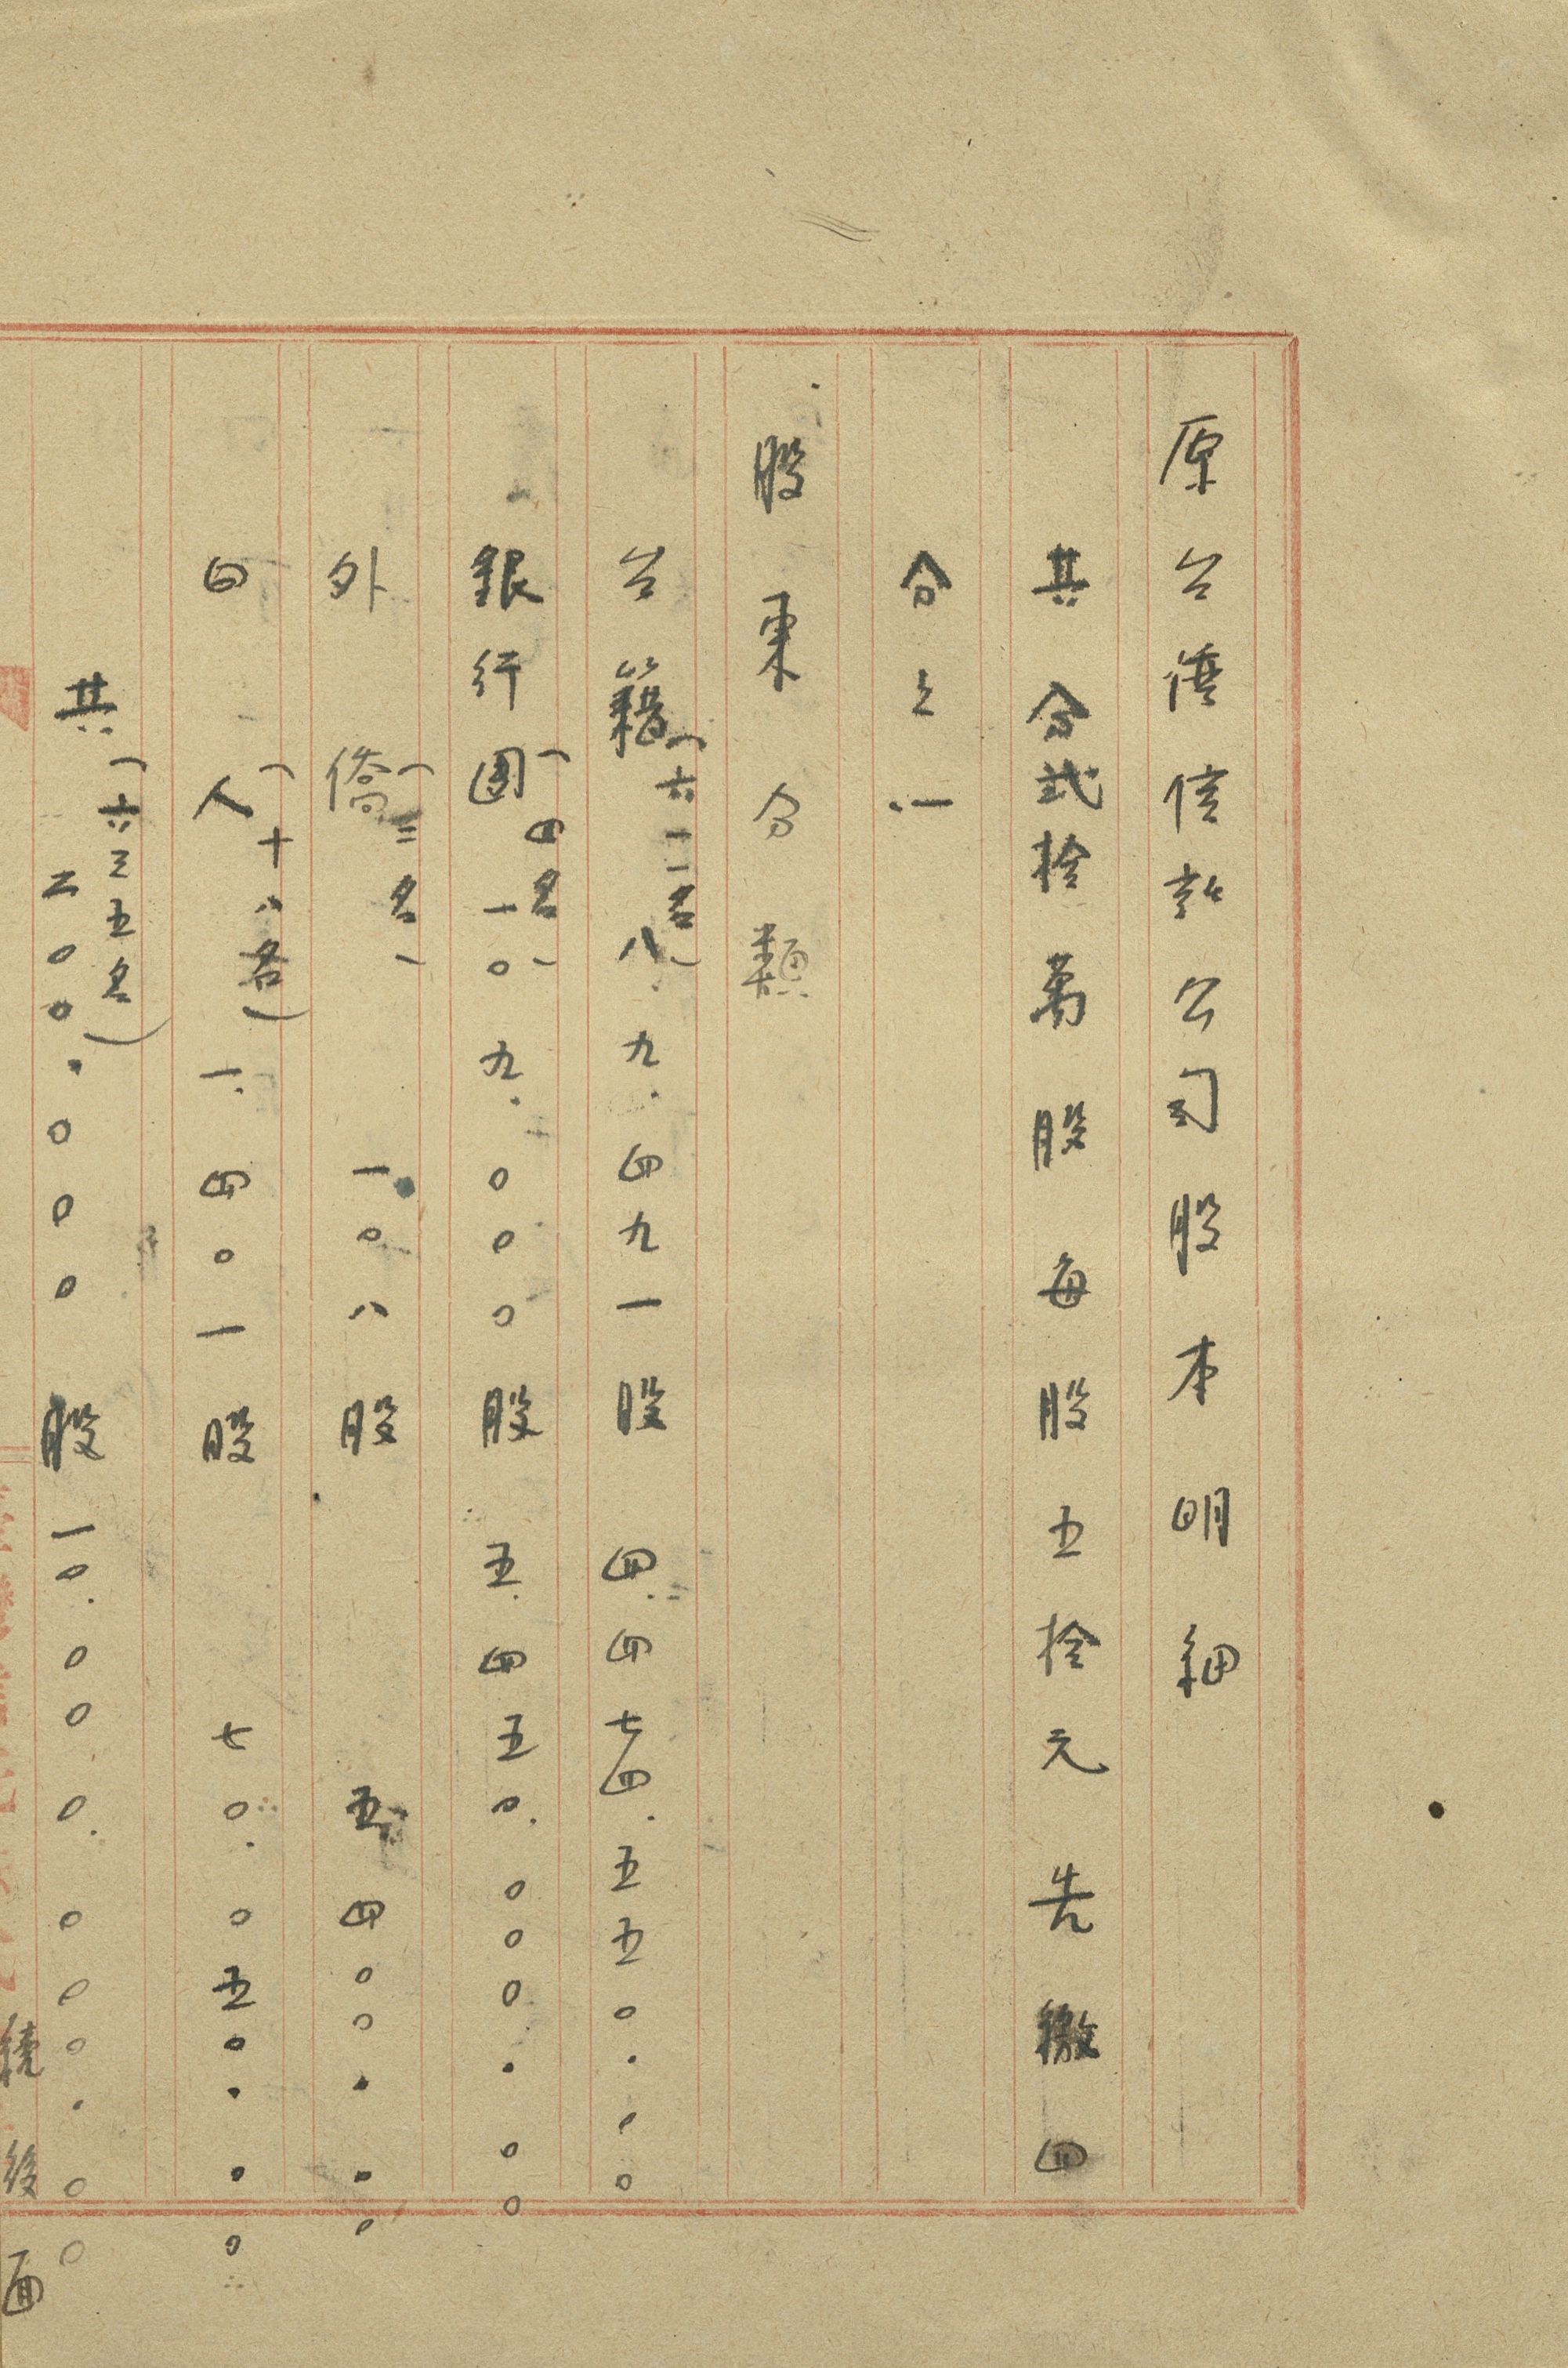 原台湾信託公司股本明細
共分弍拾萬股每股五拾元先繳四
分之一
股東分類
台籍(六一一名)八九.四九一股 四.四七四.五五〇.〇〇
銀行團(四名)一〇九.〇〇〇股 五.四五〇.〇〇〇.〇〇
外僑(二名)一〇八股 五.四〇〇.〇〇
日人(十八名)一.四〇一股 七〇.〇五〇.〇〇
共(六三五名)二〇〇.〇〇〇股 一〇.〇〇〇.〇〇〇.〇〇
續後面